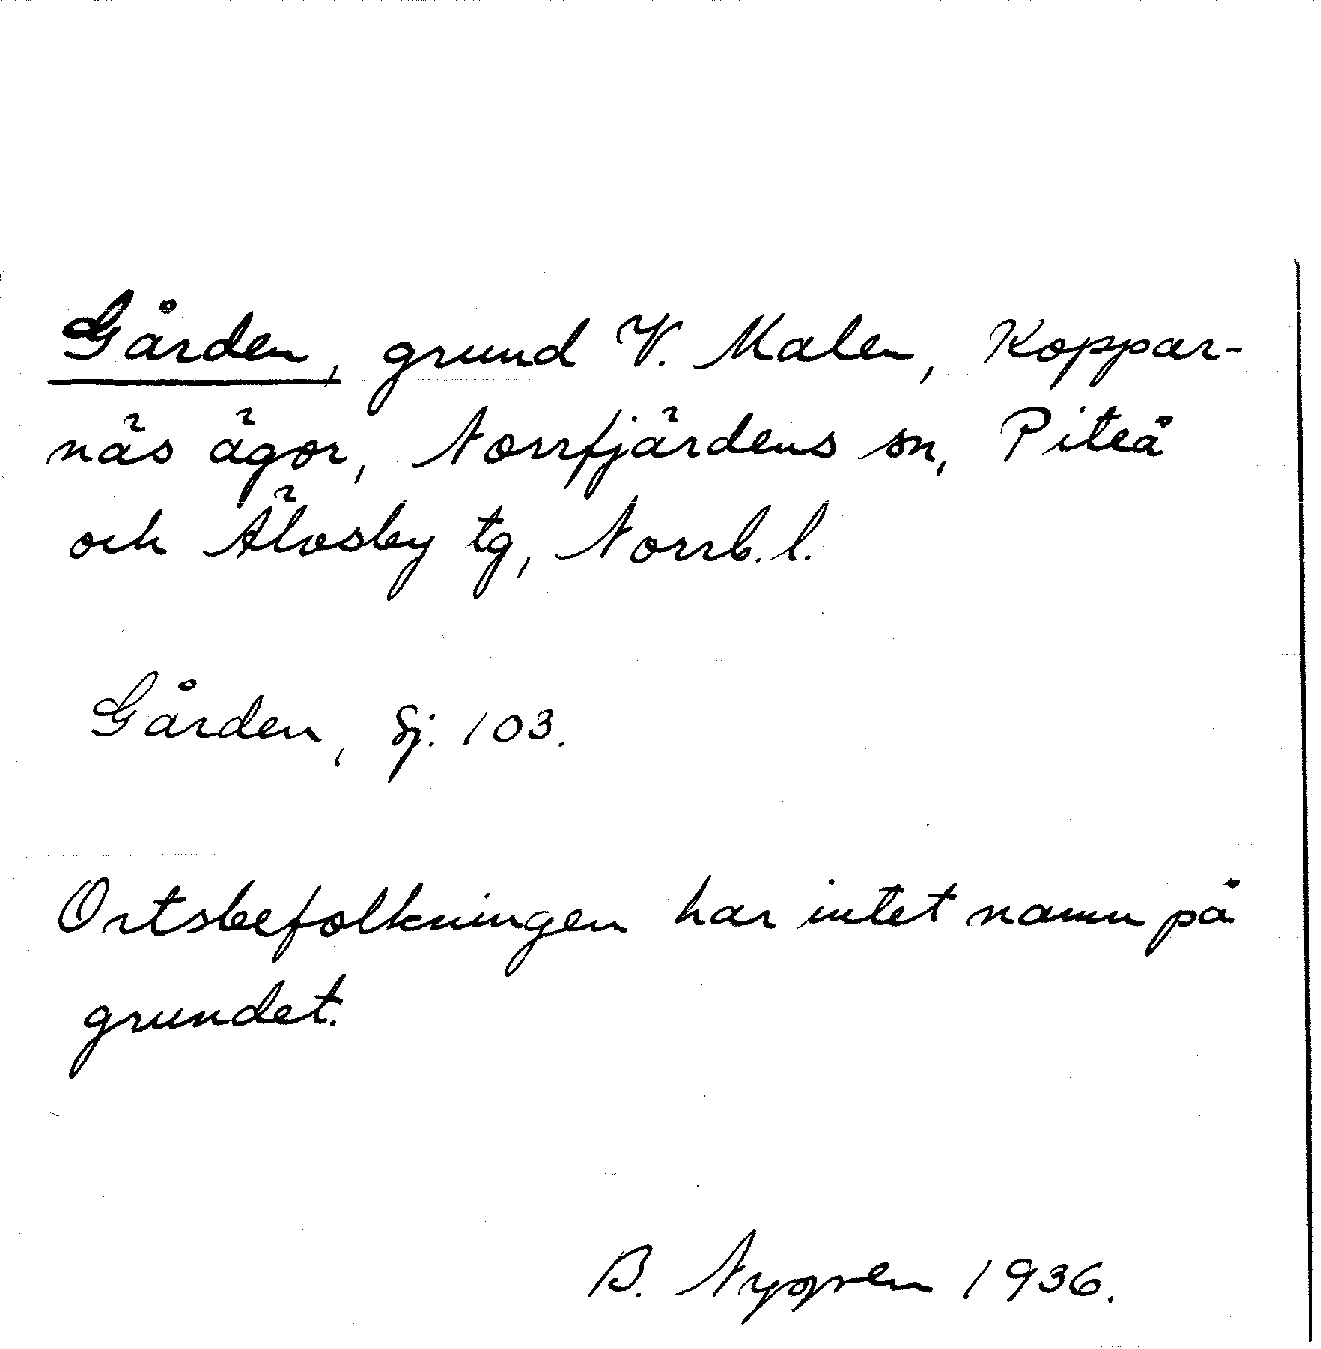 Gården, grund V. Malen, Koppar-
näs ägor, Norrfjärdens sn, Piteå
och Älvsby tg, Norrb. l.
Gården, Sj. 103.
Ortsbefolkningen har intet namn på
grundet.
B. Nygren 1936.